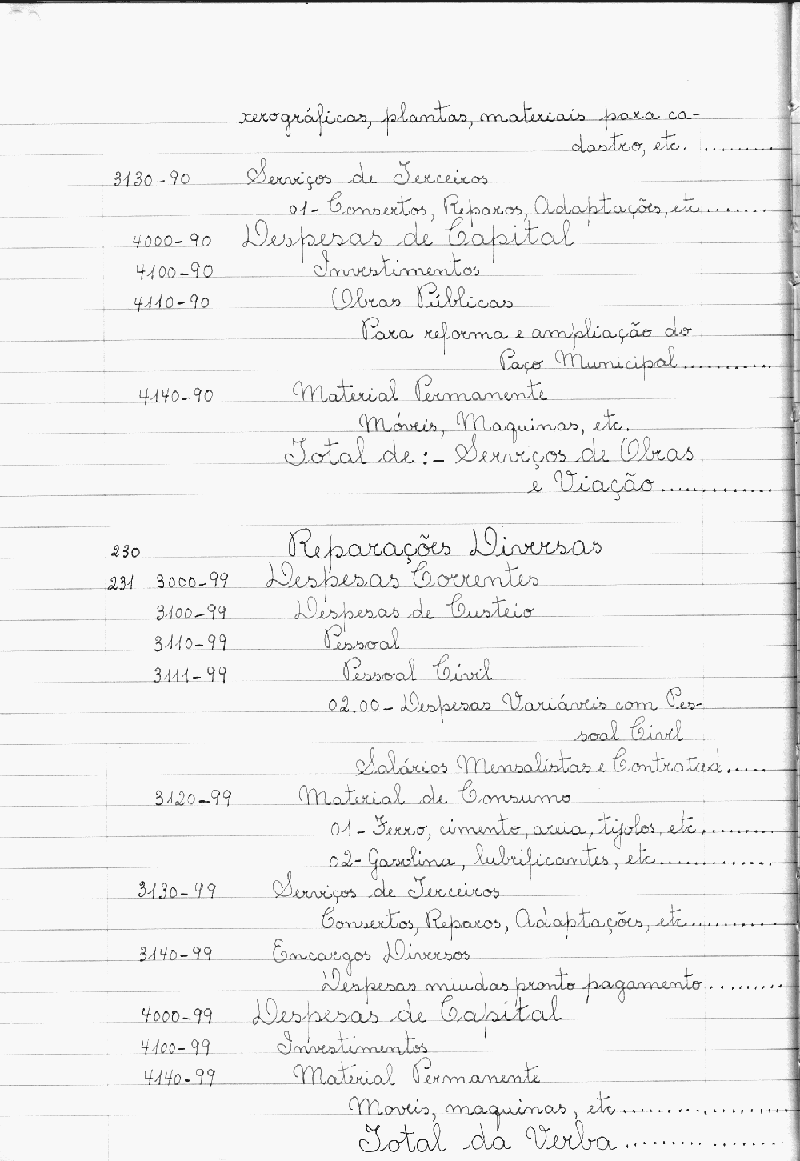 xerográficas, plantas, materiais para ca-
dastro, etc. ..........
3130-90 Serviços de Terceiros
01- Consertos, Reparos, Adaptações, etc.........
4000-90 Despesas de Capital
4100-90 Investimentos
4110-90 Obras Públicas
Para reforma e ampliação do
Paço Municipal............
4140-90 Material Permanente
Móveis, Maquinas, etc.
Total de:- Serviços de Obras
e Viação.............
230 Reparações Diversas
231 3000-99 Despesas Correntes
3100-99 Despesas de Custeio
3110-99 Pessoal
3111-99 Pessoal Civil
02.00- Despesas Variáveis com Pes-
soal Civil
Salários Mensalistas e .....
3120-99 Material de Consumo
01- Ferro, cimento, areia, tijolos, etc.........
02- Gasolina, lubrificantes, etc.............
3130-99 Serviços de Terceiros
Consertos, Reparos, Adaptações, etc..........
3140-99 Encargos Diversos
Despesas miudas pronto pagamento.........
4000-99 Despesas de Capital
4100-99 Investimentos
4140-99 Material Permanente
Moveis, maquinas, etc.................
Total da Verba ...............